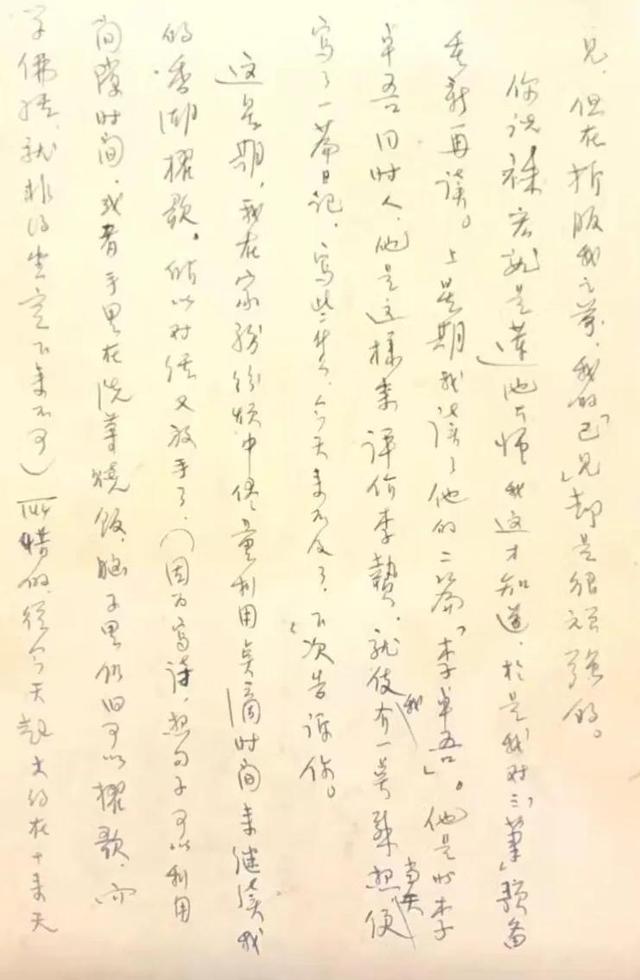 见，但在折服我之前，我的「己」见却是很顽强的。
你说祩宏就是莲池大师我这才知道，于是我对三「笔」预备
重新再读。上星期我读了他的二篇「李卓吾」。他是与李
卓吾同时人，他是这样来评价李贽，就使我有一些联想便当天
写了一篇日记，写些什么，今天来不及了，下次告诉你。
这星期，我在家务纷烦中尽量利用点滴时间来继续我
的香湖櫂歌。所以对经又放手了，（因为写诗，想句子可以利用
间隙时间，或者手里在洗菜烧饭，脑子里仍旧可以櫂歌，而
学佛经，就非得坐定下来不可）所惜的，从今天起大约在十来天